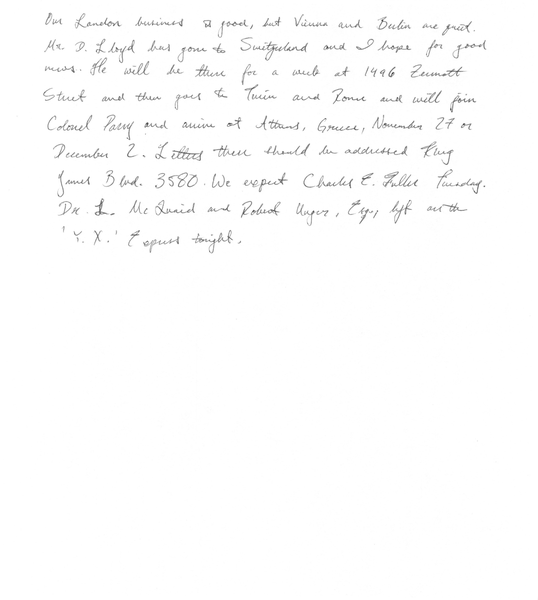 Our London business is good, but Vienna and Berlin are quiet.
Mr. D. Lloyd has gone to Switzerland and I hope for good
news. He will be there for a week at 1496 Zermott
Street and then goes to Turin and Rome and will join
Colonel Parry and arrive at Athens, Greece, November 27 or
December 2. Letters there should be addressed King
James Blvd. 3580. We expect Charles E. Fuller Tuesday.
Dr. L. McQuaid and Robert Unger, Esq., left on the
'Y. X.' Express tonight.